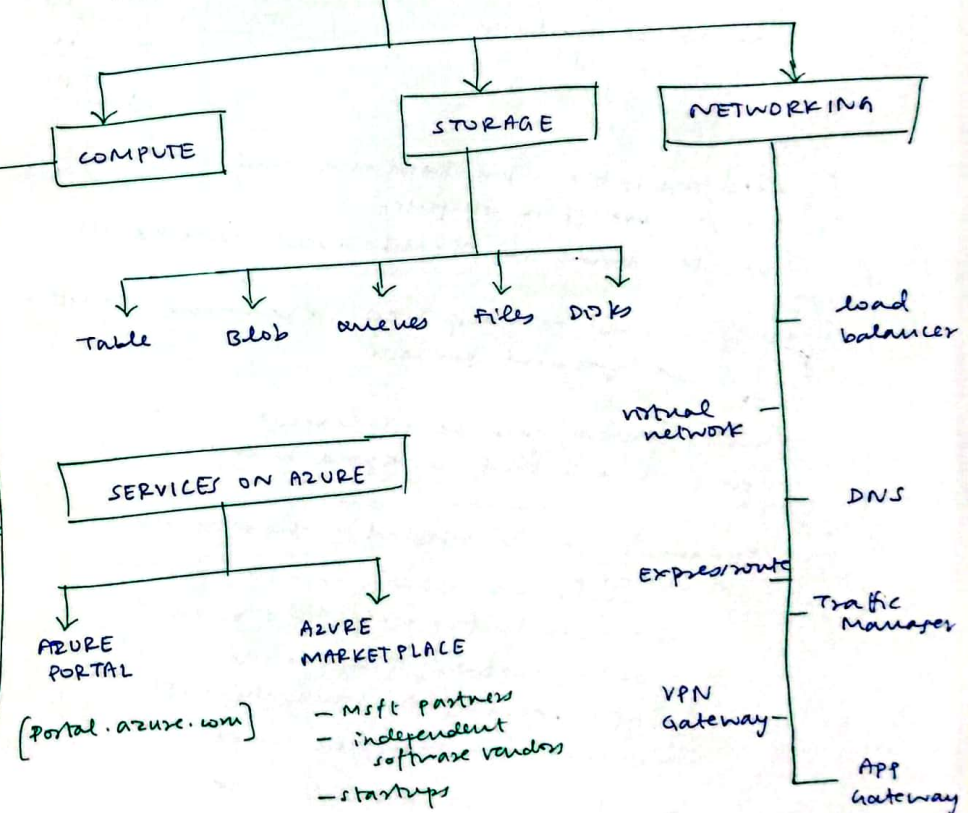 COMPUTE
STORAGE
NETWORKING
Table
Blob
Queues
Files
Disks
load
balancer
virtual
network
DNS
Expressroute
Traffic
Manager
VPN
Gateway
App
Gateway
SERVICES ON AZURE
AZURE
PORTAL
[portal.azure.com]
AZURE
MARKETPLACE
- Msft partners
- independent
software vendors
- startups